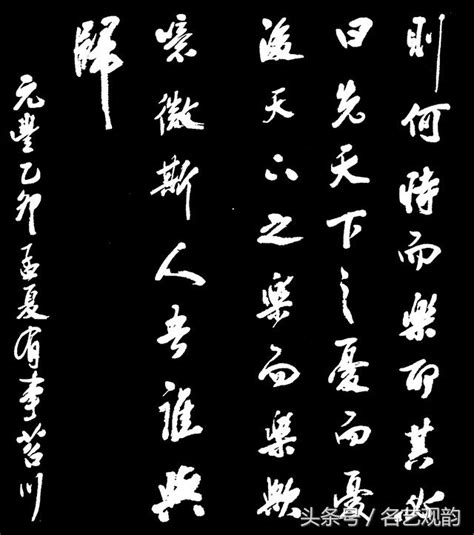 則何時而樂耶其必
曰先天下之憂而憂
後天下之樂而樂歟
噫微斯人吾誰與
歸
元豐乙卯孟夏有事苕川
头条号 / 名艺观韵